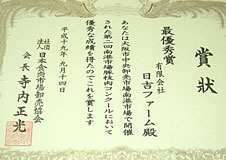 賞状
最優秀賞
有限会社
日吉ファーム殿
あなたは大阪市中央卸売市場南港市場で開催
された第二回南港市場豚枝肉コンクールにおいて
優秀な成績を得たのでこれを賞します
平成十九年九月十四日
社団法人日本食肉市場卸売協会
会長寺内正光